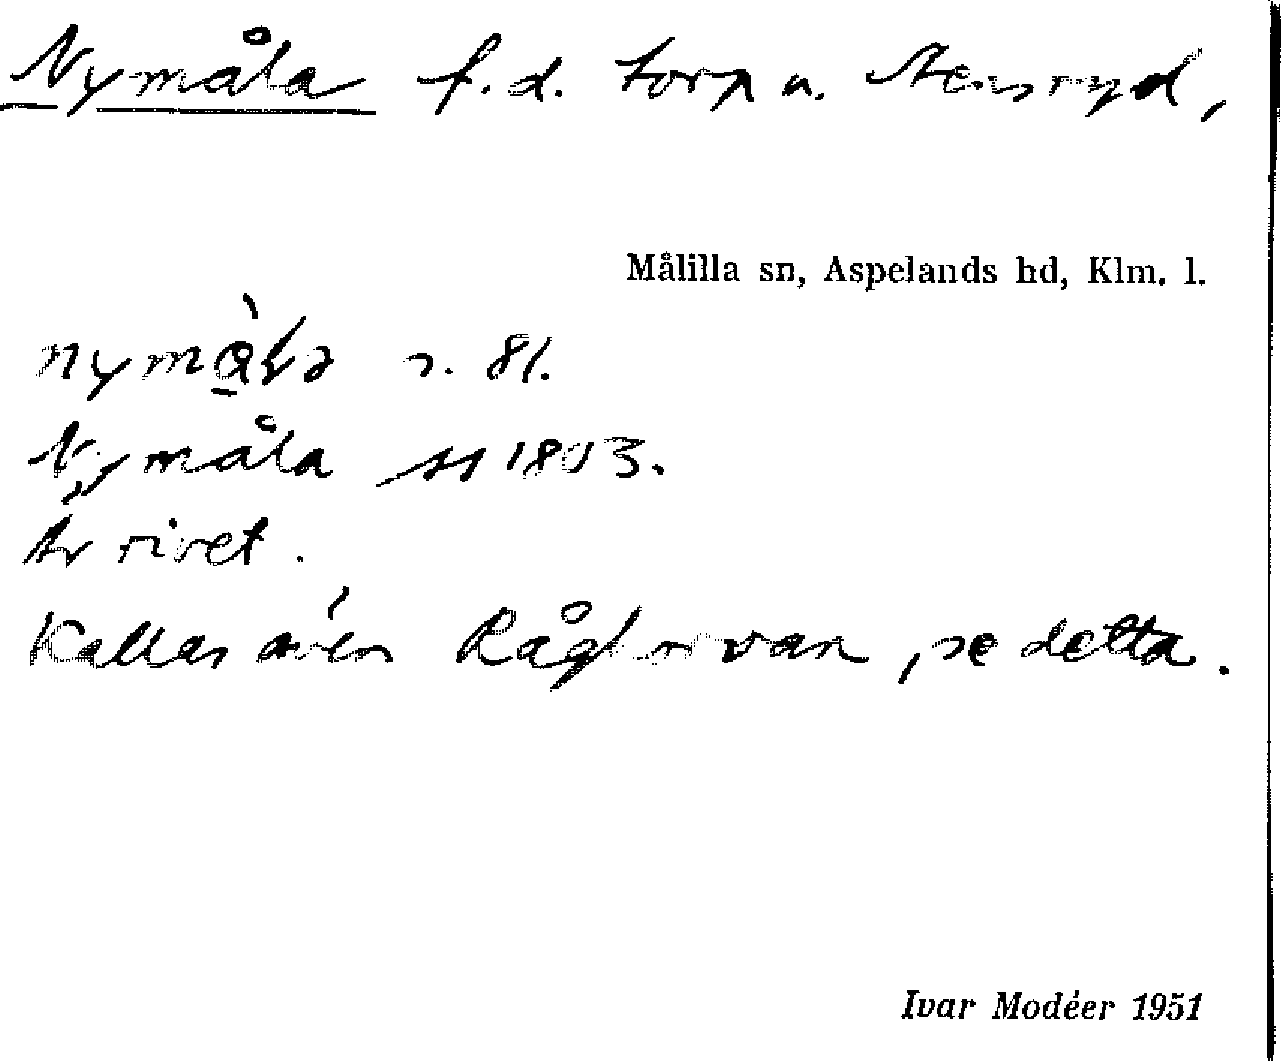 Nymåla f.d. torp u. Stensryd,
Målilla sn, Aspelands hd, Klm. l.
s. 81.
Nymåla 1803.
Är rivet.
Kallas även se detta.
Ivar Modéer 1951